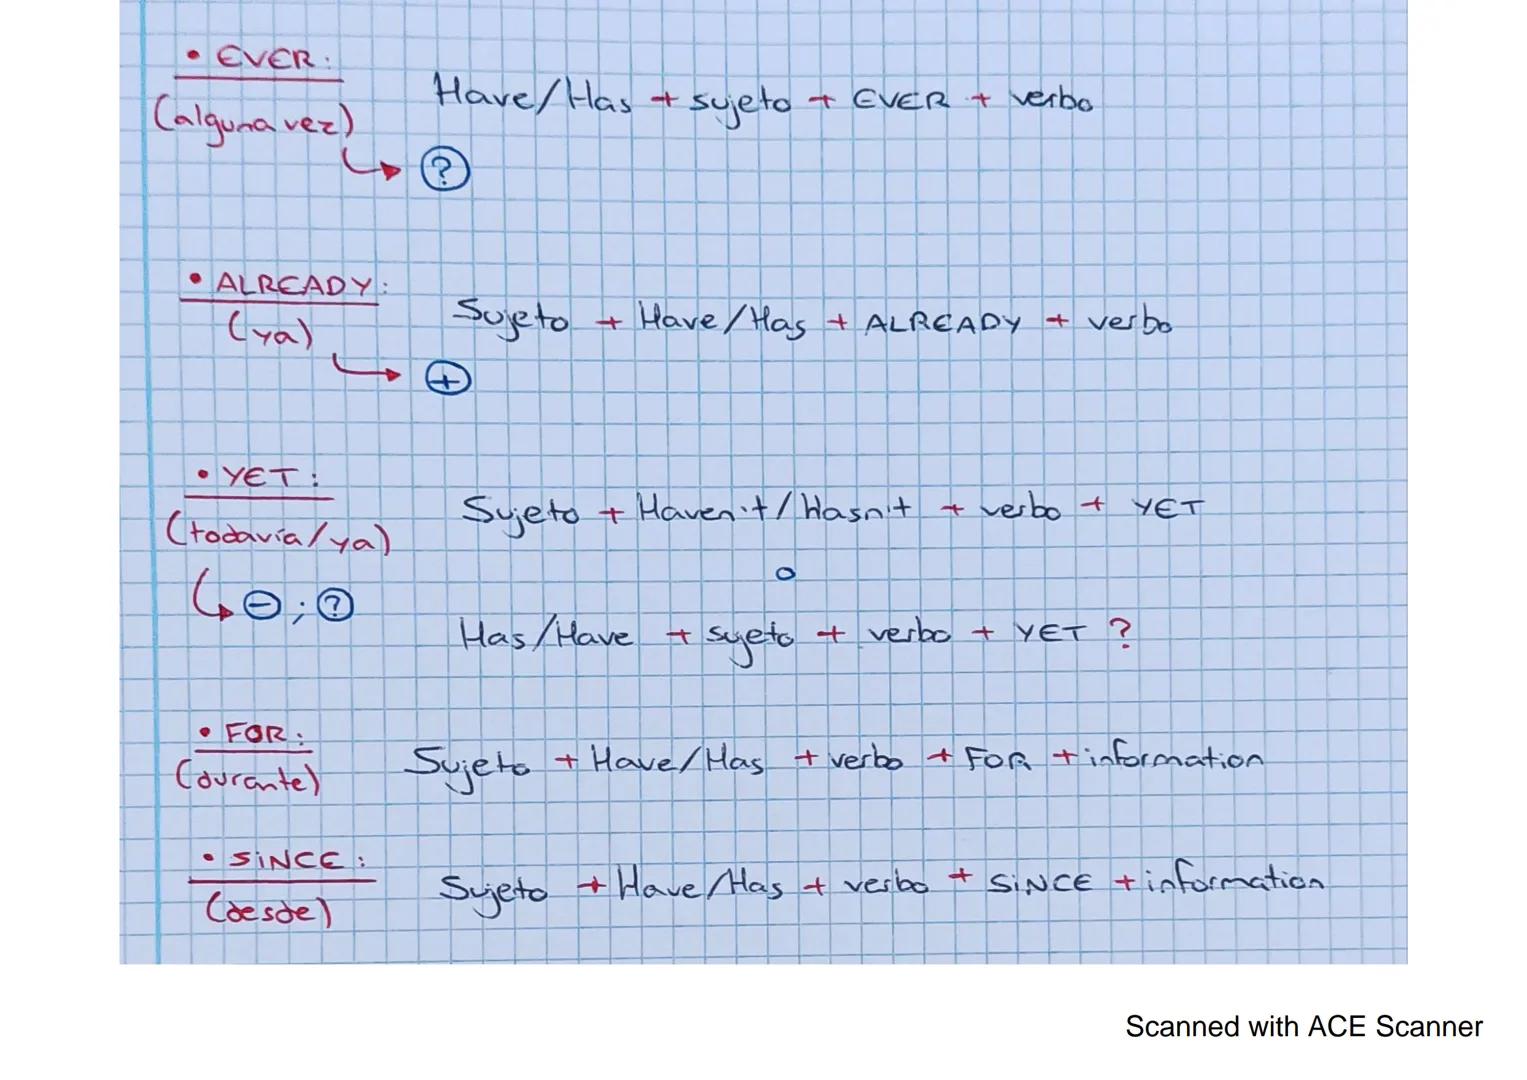 • EVER:
Have/Has + sujeto + EVER + verbo
(alguna vez)
?
• ALREADY:
Sujeto + Have/Has + ALREADY + verbo
(ya)
+
• YET:
Sujeto + Haven't/Hasn't + verbo + YET
(todavía/ya)
o
- ; ?
Has/Have + sujeto + verbo + YET ?
• FOR:
Sujeto + Have/Has + verbo + FOR + information
(durante)
• SiNCE:
Sujeto + Have/Has + verbo + SiNCE + information
(desde)
Scanned with ACE Scanner